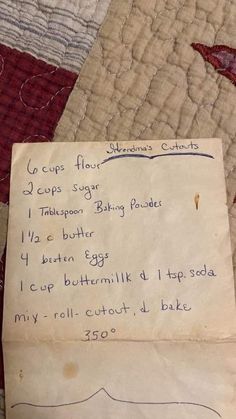 Grandma's Cutouts
6 cups flour
2 cups sugar
1 Tablespoon Baking Powder
1 1/2 c butter
4 beaten Eggs
1 cup buttermillk & 1 tsp. soda
mix - roll - cutout, & bake
350°